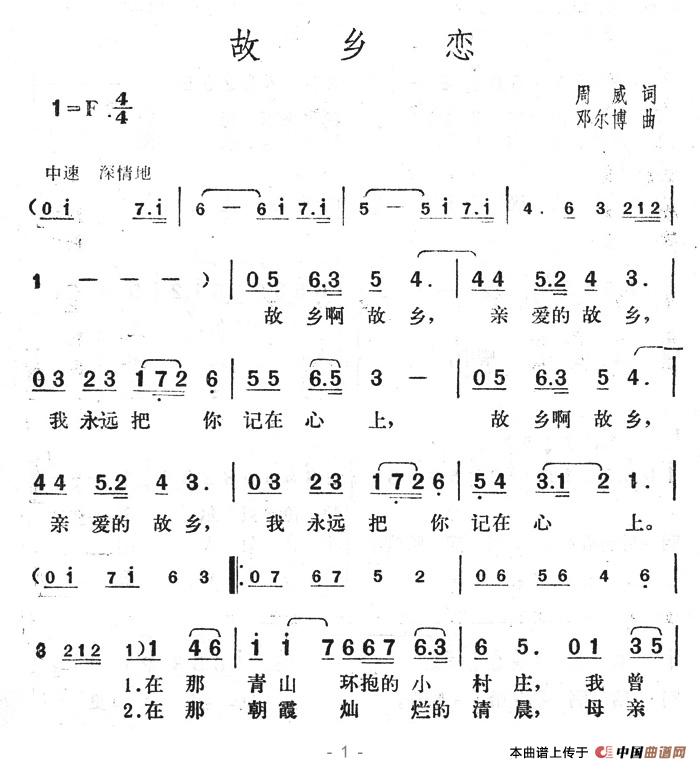 故 乡 恋
1=F 4/4
周 威 词
邓尔博 曲
中速 深情地
(0i 7.i | 6 — 6i 7.i | 5 — 5i 7.i | 4. 6 3 212 |
1 — — — ) | 05 6.3 5 4. | 44 5.2 4 3. |
故 乡啊 故 乡， 亲 爱的 故 乡，
03 23 1726 | 55 6.5 3 — | 05 6.3 5 4. |
我 永远 把 你 记在 心 上， 故 乡啊 故乡，
44 5.2 4 3. | 03 23 1726 | 54 3.1 2 1. |
亲 爱的 故 乡， 我 永远 把 你 记在 心 上。
(0i 7i 6 3 |: 07 67 5 2 | 06 56 4 6 |
3 212 1)1 46 | i i 7667 6.3 | 6 5. 01 35 |
1.在 那 青 山 环抱的 小 村 庄， 我 曾
2.在 那 朝 霞 灿 烂的 清 晨， 母 亲
- 1 -
本曲谱上传于 中国曲谱网